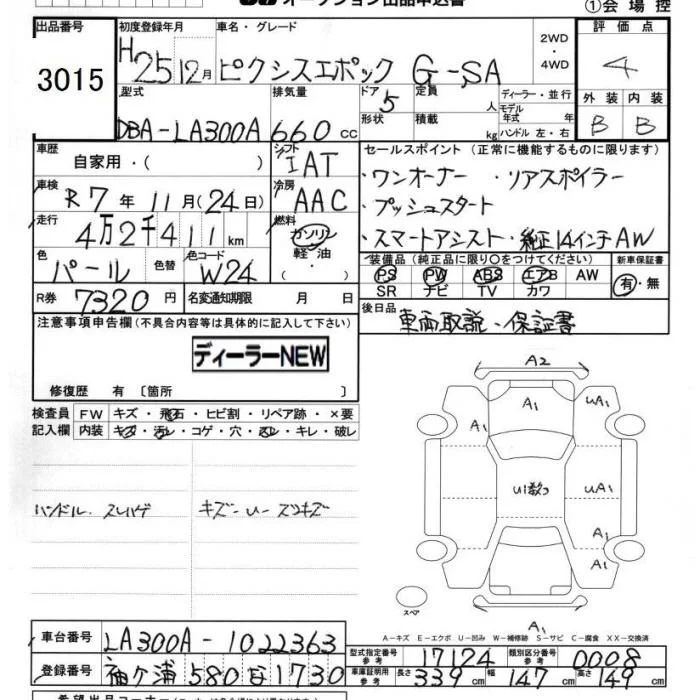 オークション出品申込書
①会場控
出品番号 初度登録年月 車名・グレード 評価点
3015 H25 12月 ピクシスエポック G-SA 2WD・4WD 4
型式 排気量 ドア 定員 人 ディーラー・並行 外装 内装
DBA-LA300A 660cc 5 形状 積載 kg モデル年式 年 ハンドル 左・右 B B
車歴 自家用・( ) シフト IAT セールスポイント (正常に機能するものに限ります)
車検 R7年 11月(24日) 冷房 AAC ・ワンオーナー ・リアスポイラー
・プッシュスタート
走行 4万2千411km 燃料 ガソリン・軽油・( ) ・スマートアシスト・純正14インチAW
色 パール 色替 色コード W24 装備品(純正品に限り○をつけてください) 新車保証書
PS PW ABS エアB AW 有・無
SR ナビ TV カワ
R券 7320円 名変通知期限 月 日 後日品 車両取説・保証書
注意事項申告欄(不具合内容等は具体的に記入して下さい)
ディーラーNEW
修復歴 有〔箇所 〕
検査員 FW キズ・飛石・ヒビ割・リペア跡・×要
記入欄 内装 キズ・汚レ・コゲ・穴・スレ・キレ・破レ
A2
A1 UA1
A1
ハンドル.スレハゲ キズ-U-スリキズ
Ui数つ UA1
A1
A1
スペア
A1
A-キズ E-エクボ U-凹み W-補修跡 S-サビ C-腐食 XX-交換済
車台番号 LA300A-1022363
型式指定番号 参考 17124 類別区分番号 参考 0008
登録番号 袖ケ浦 580 1730
車庫証明用 参考 長さ 339cm 幅 147cm 高さ 149cm